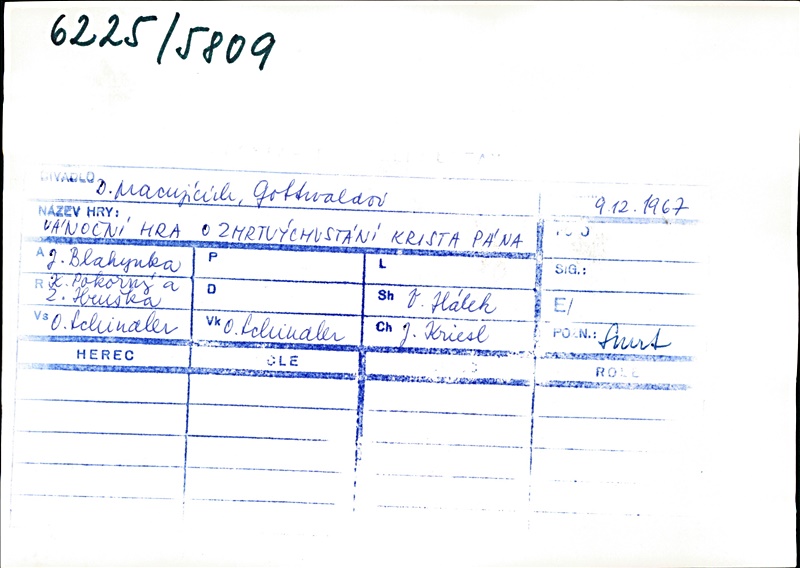 6225/5809
DIVADLO D. Pracujících, Gottwaldov 9.12.1967
NÁZEV HRY:
VÁNOČNÍ HRA O ZMRTVÝCHVSTÁNÍ KRISTA PÁNA
A J. Blahynka P L SIG.:
R K. Pokorný a Z. Hruška D Sh V. Hálek E/
Vs O. Schindler Vk O. Schindler Ch J. Kriesl POZN.: Smrt
HEREC ROLE ROLE